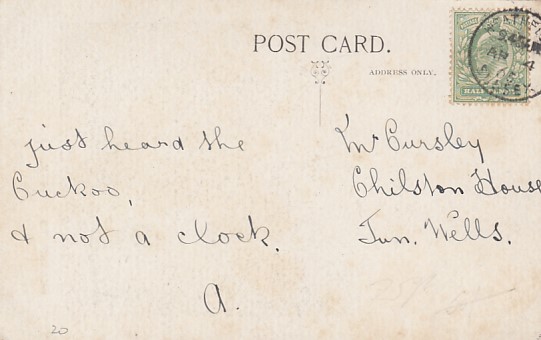 POST CARD.
ADDRESS ONLY.
HALFPENNY
just heard the
Cuckoo,
& not a clock.
A.
Mr Cursley
Chilston House
Tun. Wells.
20